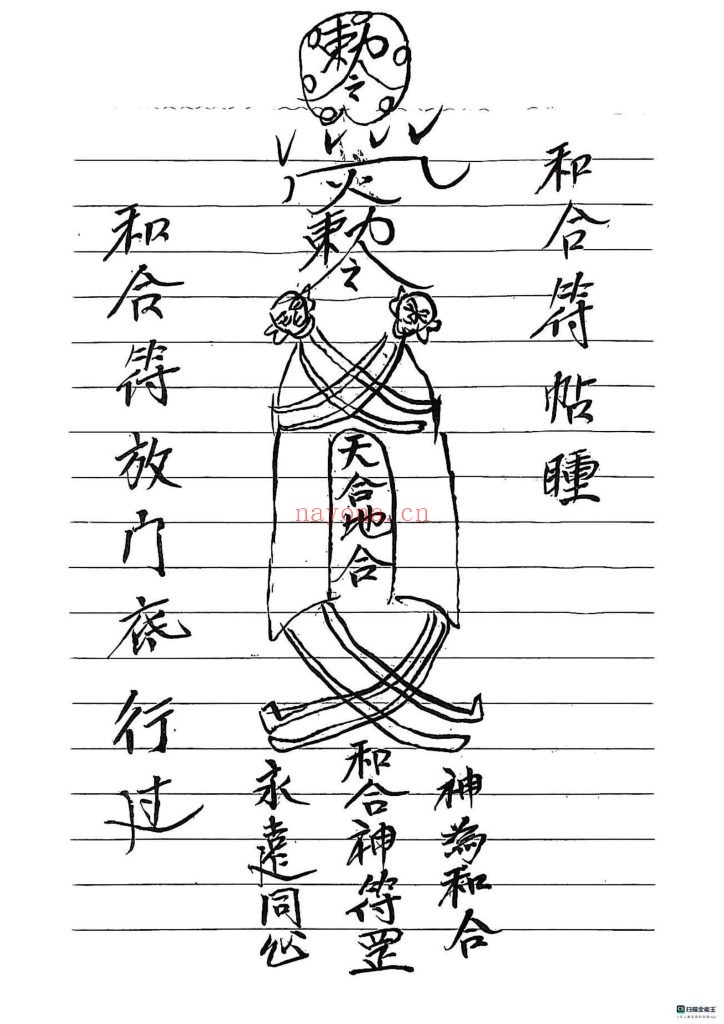 勅令
火
勅令
和合符帖睡
和合符放门底行过
天合地合
神為和合
和合神符罡
永遠同心
nayona.cn
扫描全能王